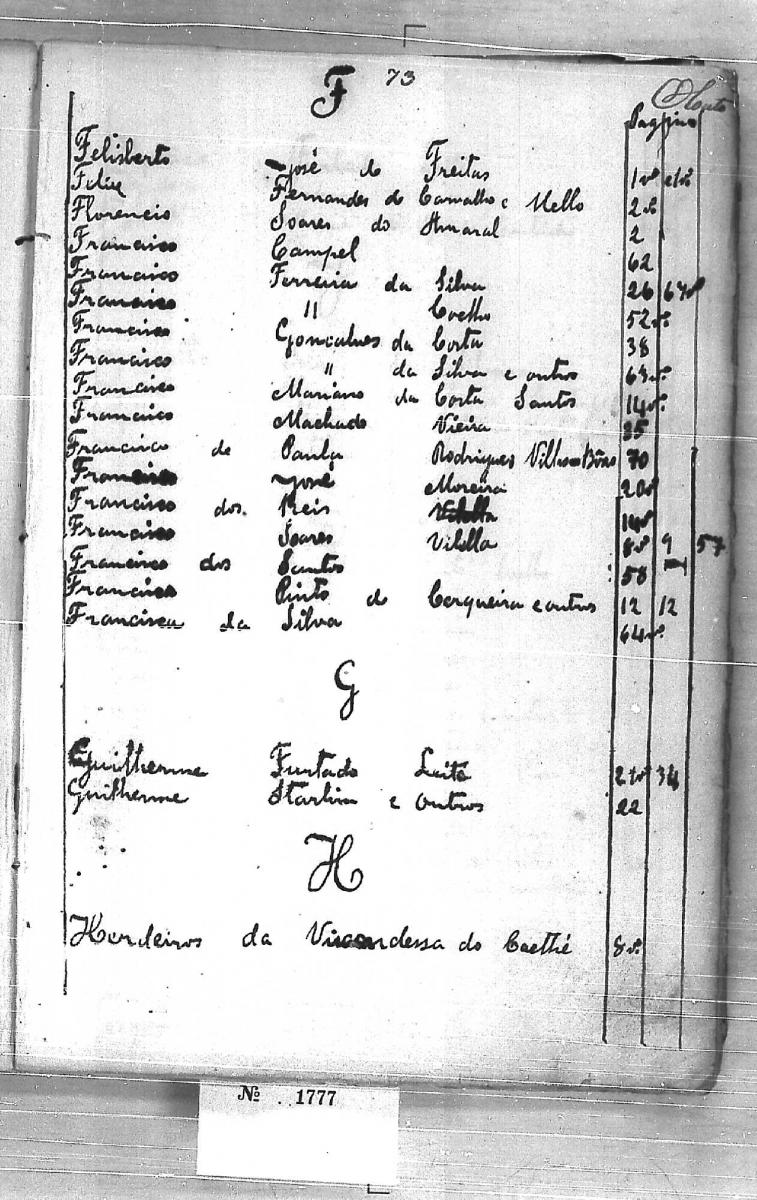 73
F
Paginas
Felisberto José de Freitas 1vº
Felix Fernandes de Carvalho e Mello 2vº
Florencio Soares do Amaral 2
Francisco Campel 62
Francisco Ferreira da Silva 26 67vº
Francisco " Coelho 52vº
Francisco Gonçalves da Costa 38
Francisco " da Silva e outros 63vº
Francisco Mariano da Costa Santos 14vº
Francisco Machado Vieira 35
Francisco de Paula Rodrigues Villas-Bôas 70
Francisco José Moreira 20vº
Francisco dos Reis Vilella 14vº
Francisco Soares Vilella 8vº 9 57
Francisco dos Santos 58
Francisco Pinto de Cerqueira e outros 12 12
Francisca da Silva 64vº
G
Guilherme Furtado Leite 21vº 34
Guilherme e Outros 22
H
Herdeiros da Viscondessa do Caethé 8vº
Nº 1777